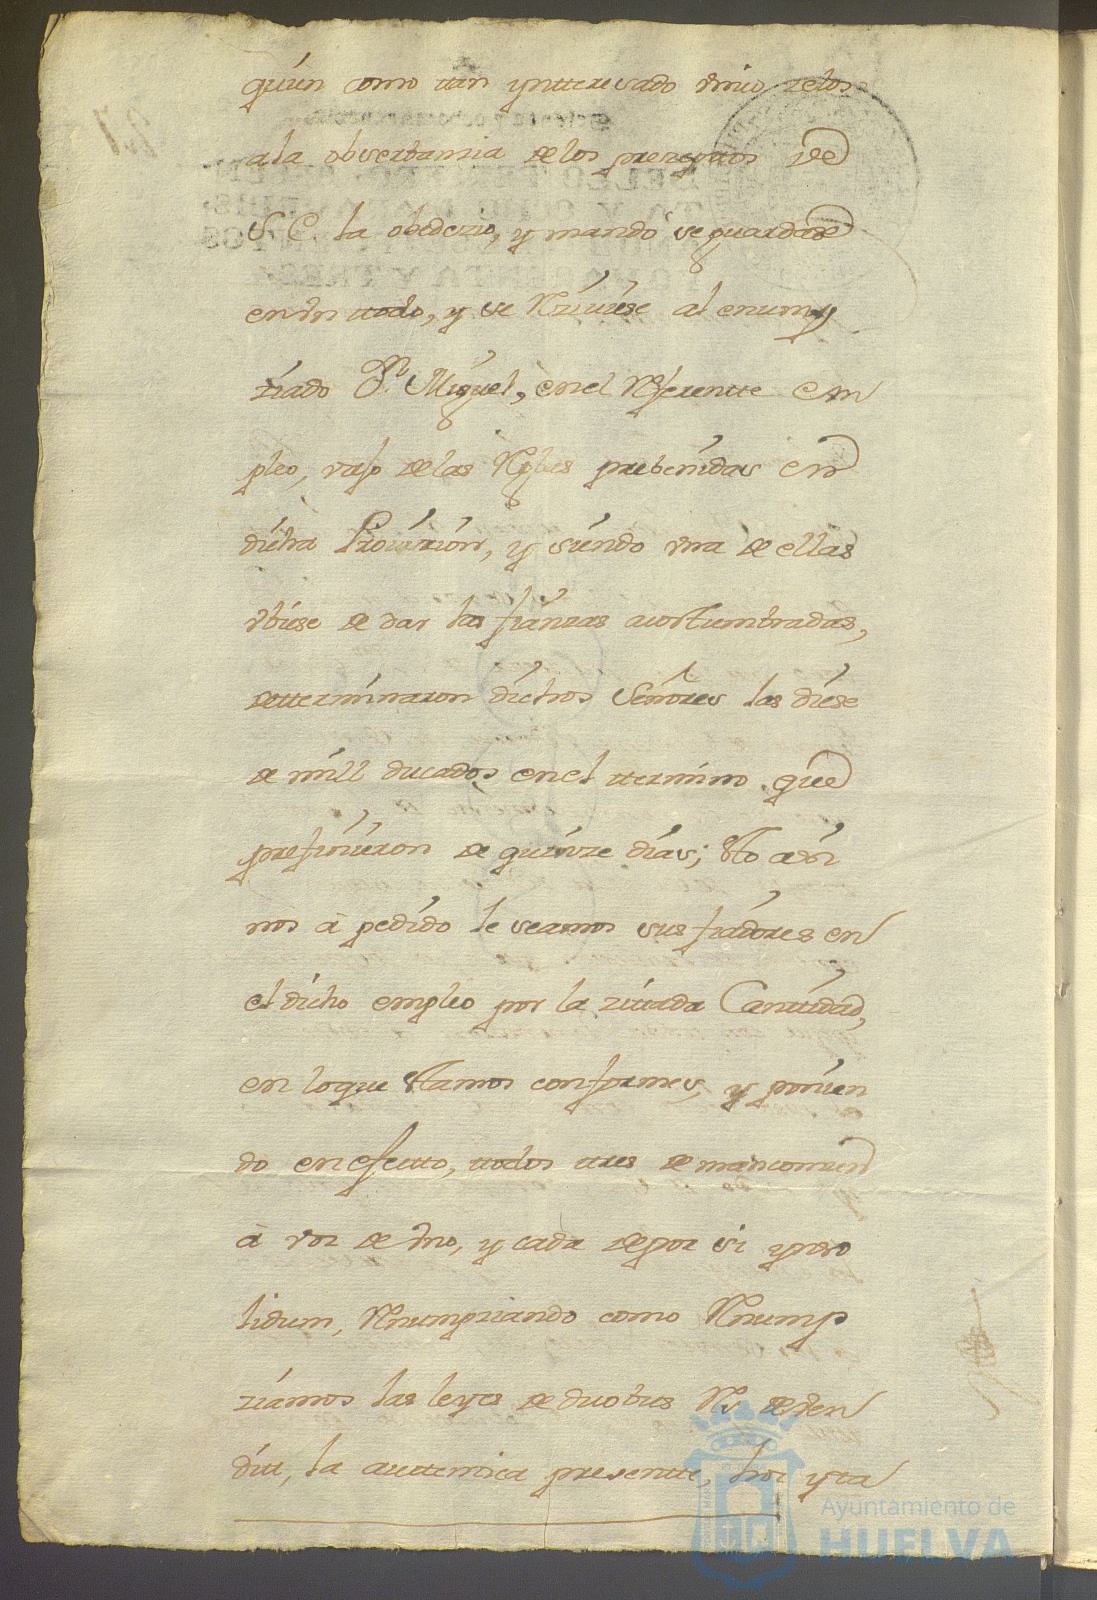 quien como tan yntteresado vnico zelos
a la obserbanzia de los prezeptos de
S. E. la obedezio, y mandó se guardase
en vn ttodo, y se Rziviese al enump
ziado Dn. Miguel, en el Rferentte em
pleo, vajo de las Rglas prebenidas en
dicha Provizion, y siendo vna de ellas
vbiese de dar las fianzas acostumbradas,
detterminaron dichos Señores las diese
de mill ducados en el ttermino que
prefinieron de quinze dias; Ato a vi
nos à pedido le seamos sus fiadores en
el dicho empleo por la zittada Canttidad,
en loque Stamos conformes, y ponien
do en efectto, ttodos ttres de mancomun
à voz de vno, y cada de por si ynso
lidum, Rnumpziando como Rnump
ziamos las leyes de duobus Rs de ven
di, la auttenica presentte, hoc yta
Ayuntamiento de
HUELVA